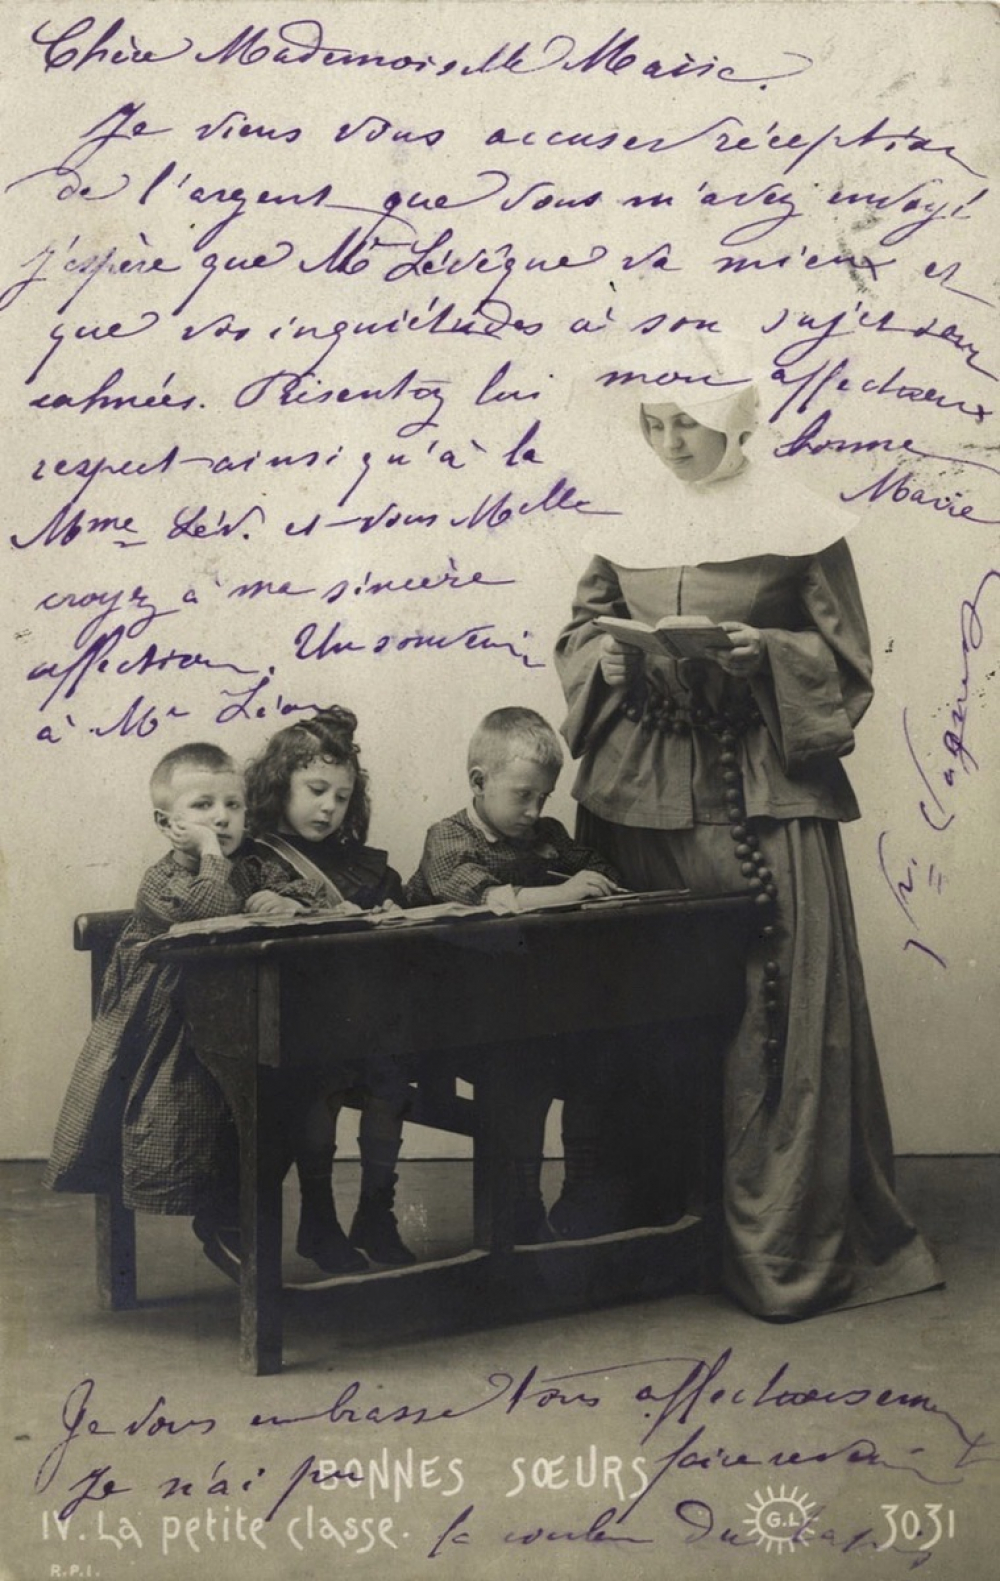 Chère Mademoiselle Marie.
Je viens vous accuser réception
de l'argent que vous m'avez envoyé
J'espère que Mr Lévêque va mieux et
que vos inquiétudes à son sujet sont
calmées. Présentez lui mon affectueux
respect ainsi qu'à la bonne
Marie
Mme Lév. et vous Melle
croyez à ma sincère
affection. Un souvenir
à Mr Léon
Je vous embrasse tous affectueusement
Je n'ai pu faire revenir
la couleur du
BONNES SŒURS
IV. La petite classe.
G.L
3031
R.P.I.